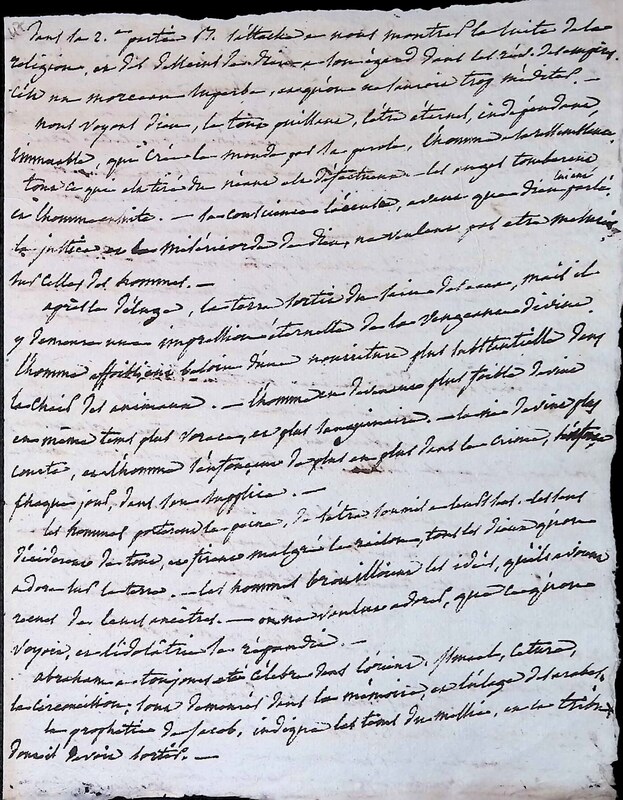 dans la 2.e partie B. s'attache a nous montrer la suite de la
religion, et des desseins de dieu a son égard dans les rév. des empires.
C'est un morceau superbe, et qu'on ne sauroit trop méditer. —
nous voyons dieu, le tout puissant, l'être éternel, indépendant,
immuable, qui crée le monde par sa parole, l'homme a la ressemblance
tout ce que est tiré du néant est défectueux. les anges tomberent
et l'homme imite. — la conscience l'accuse, avant que dieu lui ait parlé.
la justice et la miséricorde de dieu, ne veulent pas etre mesurées
sur celles des hommes. —
après le déluge, la terre sortie du sein des eaux, mais il
y demeure une impression éternelle de la vengeance divine.
l'homme affoibli eut besoin d'une nourriture plus substantielle dans
la chair des animaux. — l'homme en devenant plus foible devint
en même tems plus vorace, et plus sanguinaire. — la vie devint plus
courte, et l'homme s'enfonceroit de plus en plus dans le crime,
chaque jour, dans son supplice. —
les hommes porterent la peine, de s'être soumis a leurs sens. les sens
déciderent de tout, et firent malgré la raison, tous les dieux qu'on
adora sur la terre. — les hommes brouilloient les idées, qu'ils avoient
recues de leurs ancêtres. — on ne voulut adorer, que ce qu'on
voyoit, et l'idolâtrie se répandit. —
abraham a toujours été célèbre dans l'orient. Ismael, Cetura,
la circoncision, sont demeurés dans la mémoire, et l'éloge des arabes.
la prophetie de Jacob, indique les tems du messie, et la tribu
dont il devoit sortir. —